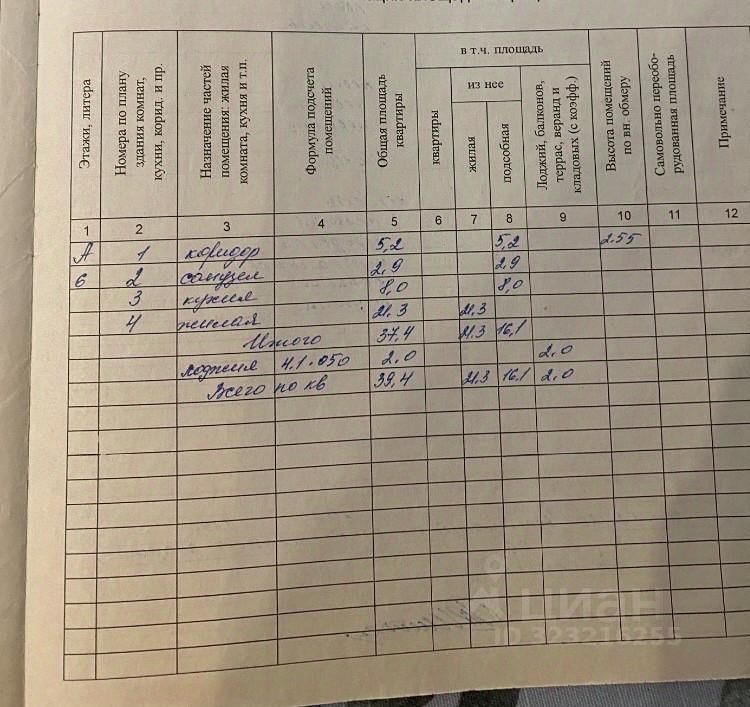 Этажи, литера
Номера по плану здания комнат, кухни, корид. и пр.
Назначение частей помещения: жилая комната, кухня и т.п.
Формула подсчета помещений
Общая площадь квартиры
в т.ч. площадь
квартиры
из нее
жилая
подсобная
Лоджий, балконов, террас, веранд и кладовых (с коэфф.)
Высота помещений по вн. обмеру
Самовольно переобо-рудованная площадь
Примечание
1 2 3 4 5 6 7 8 9 10 11 12
А 1 коридор 5,2 5,2 2.55
6 2 санузел 2,9 2,9
3 кухня 8,0 8,0
4 жилая 21.3 21.3
Итого 37,4 21.3 16,1
лоджия 4.1·050 2.0 2.0
Всего по кв 39,4 21.3 16,1 2.0
циан
ID 323215255